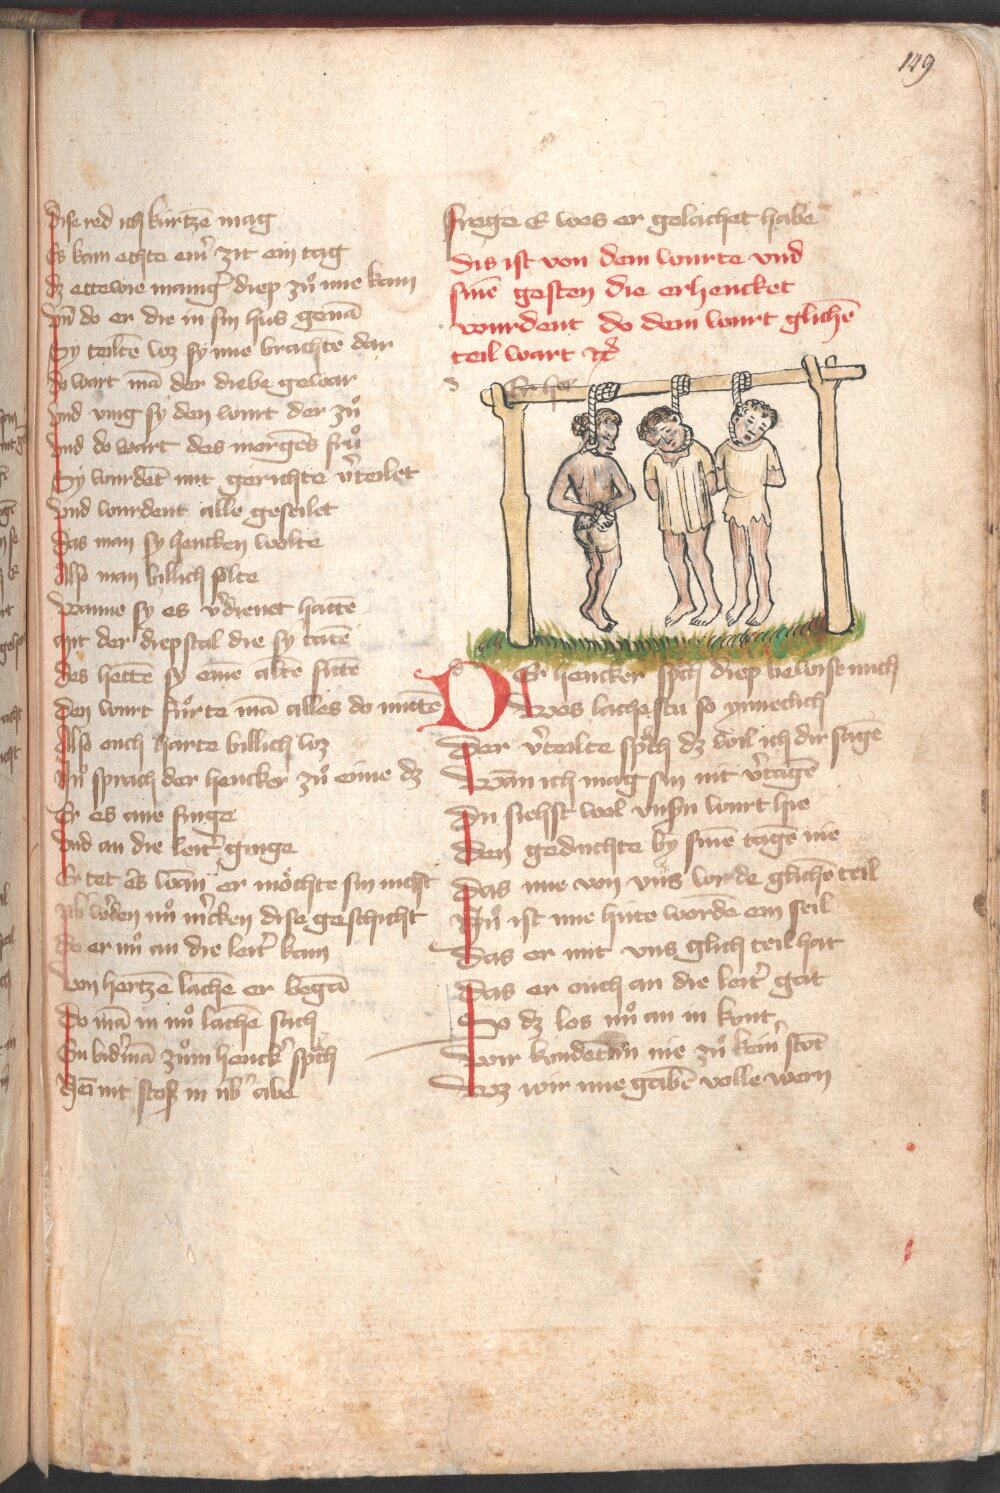 149
Dise red ich kürtzē mag
Es kam echte em̄ zit ein tag
dz ettewie manig̃ diep zuͦ ime kam
Vn̄ do er die in sin hus genā
Sy teiltē waz sy ime brachtē dar
do wart mā der diebe gewar
Vnd ving sy den wurt der zuͦ
Vnd do wart des morgēs fruͦ
Sy wurdēt mit gerichte v̾teilet
Vnd wurdent alle geseilet
Das man sy hencken wolte
Also man billich solte
Wanne sy es v̾dienet hattē
mit der diepstal die sy tatē
des hettē sy eine altē sittē
Den wurt fuͤrte mā alles do mittē
Also ouch harte billich waz
Nuͦ sprach der hencker zuͦ eime dz
Er es ane finge
Vnd an die leit̾ ginge
Er tet es wān er moͤchte sin nicht
w̾den nuͦ m̾cken dise geschicht
do er nuͦ an die leit̾ kam
Von hertzē lachē er begā
Do mā in nuͦ lachē sach
Ein bid̾mā zuͦm henck̾ sp̾ch
nit stos in ab̾ abe
Frege E wes er gelachet habe
Dis ist von dem wurte vnd
sinē gesten die erhencket
wurdent do dem wurt glichē
teil wart ꝛc̾
Er hen
DEr hencker sp̾ch diep bewise mich
Wes lachestu so ynneclich
Der v̾teilte sp̾ch dz wil ich dir sagē
Wan ich mag sin nit v̾tagē
Du siehst wol vns̾n wurt hie
Den geduchte by sinē tagē nie
Das ime von vns w̾de glichē teil
Nuͦ ist ime hüte wordē ein seil
Das er mit vns glich teil hat
Das er ouch an die leit̾ gat
So dz los nuͦ an in kunt
Wir kondētin nie zuͦ kein̾ stūt
Waz wir ime gabē volle wern